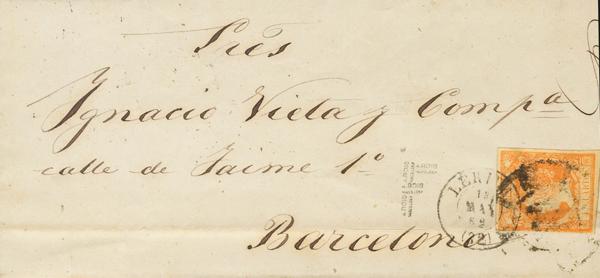 Sres
Ignacio Vieta y Compa
calle de Jaime 1º
Barcelona
LERI
MAY
(22)